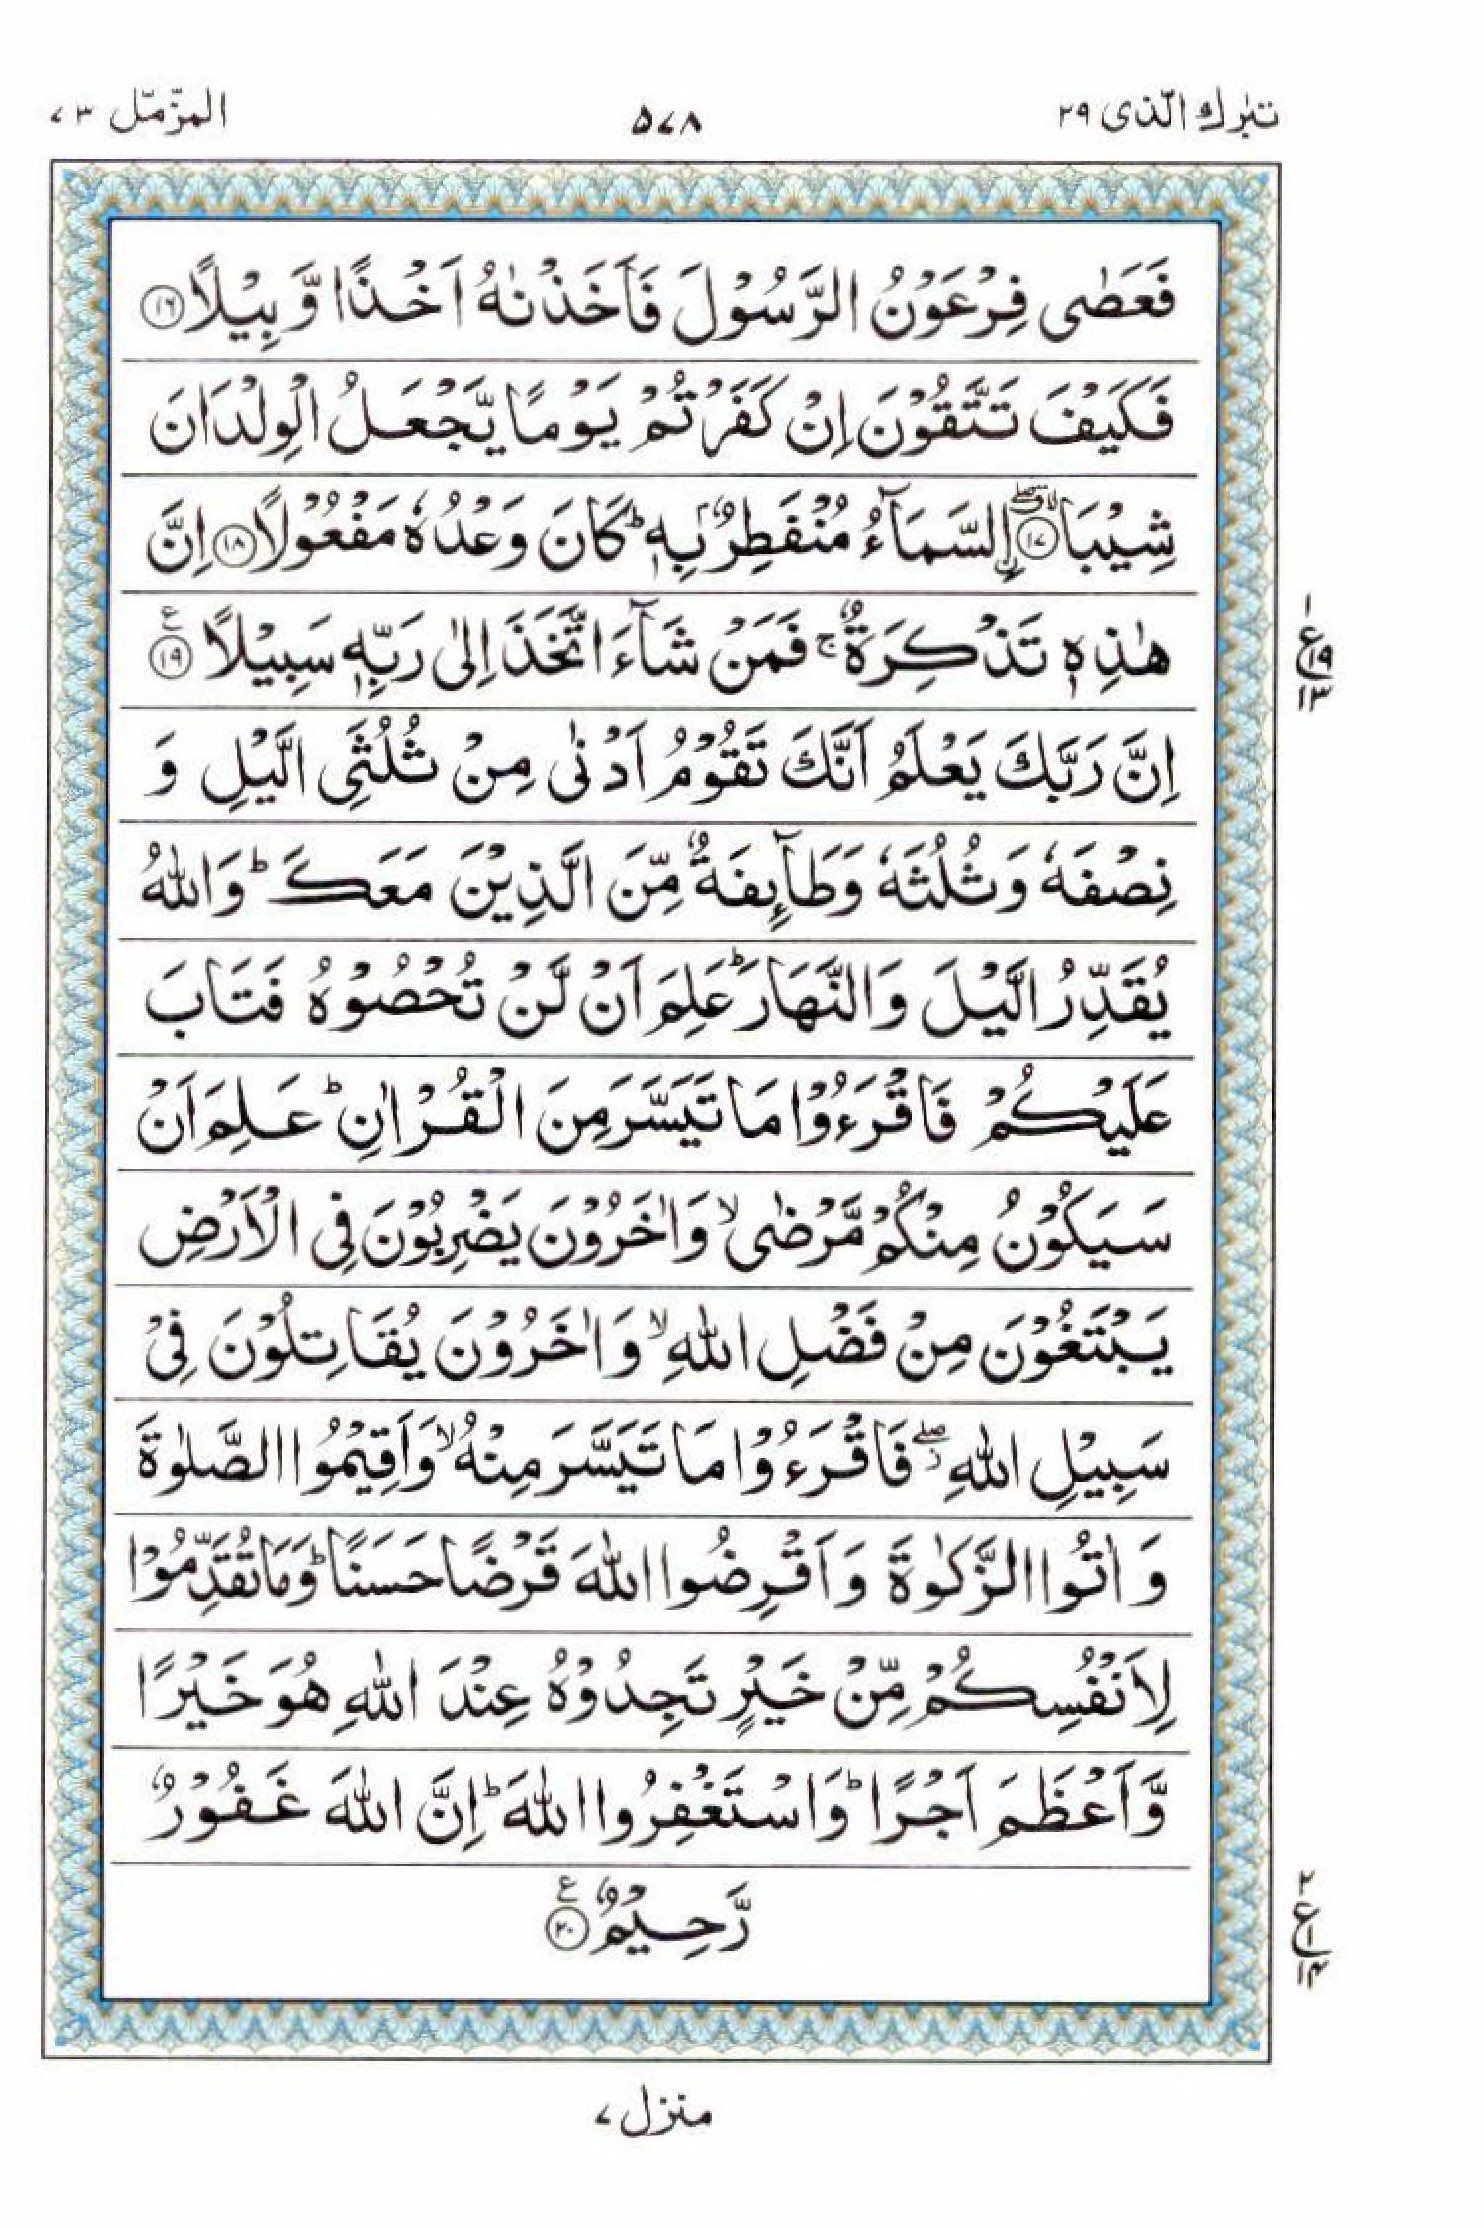 تبٰرك الّذی ٢٩
٥٧٨
المزّمّل ٧٣
فَعَصٰى فِرْعَوْنُ الرَّسُوْلَ فَاَخَذْنٰهُ اَخْذًا وَّبِيْلًا ﴿١٦﴾
فَكَيْفَ تَتَّقُوْنَ اِنْ كَفَرْتُمْ يَوْمًا يَّجْعَلُ الْوِلْدَانَ
شِيْبَا ﴿١٧﴾ اۨلسَّمَآءُ مُنْفَطِرٌۢ بِهٖ ؕ كَانَ وَعْدُهٗ مَفْعُوْلًا ﴿١٨﴾ اِنَّ
هٰذِهٖ تَذْكِرَةٌ ۚ فَمَنْ شَآءَ اتَّخَذَ اِلٰى رَبِّهٖ سَبِيْلًا ﴿١٩﴾ ع
اِنَّ رَبَّكَ يَعْلَمُ اَنَّكَ تَقُوْمُ اَدْنٰى مِنْ ثُلُثَيِ الَّيْلِ وَ
نِصْفَهٗ وَثُلُثَهٗ وَطَآئِفَةٌ مِّنَ الَّذِيْنَ مَعَكَ ؕ وَاللّٰهُ
يُقَدِّرُ الَّيْلَ وَالنَّهَارَ ؕ عَلِمَ اَنْ لَّنْ تُحْصُوْهُ فَتَابَ
عَلَيْكُمْ فَاقْرَءُوْا مَا تَيَسَّرَ مِنَ الْقُرْاٰنِ ؕ عَلِمَ اَنْ
سَيَكُوْنُ مِنْكُمْ مَّرْضٰى ۙ وَاٰخَرُوْنَ يَضْرِبُوْنَ فِى الْاَرْضِ
يَبْتَغُوْنَ مِنْ فَضْلِ اللّٰهِ ۙ وَاٰخَرُوْنَ يُقَاتِلُوْنَ فِىْ
سَبِيْلِ اللّٰهِ ۖ فَاقْرَءُوْا مَا تَيَسَّرَ مِنْهُ ۙ وَاَقِيْمُوا الصَّلٰوةَ
وَاٰتُوا الزَّكٰوةَ وَاَقْرِضُوا اللّٰهَ قَرْضًا حَسَنًا ؕ وَمَا تُقَدِّمُوْا
لِاَنْفُسِكُمْ مِّنْ خَيْرٍ تَجِدُوْهُ عِنْدَ اللّٰهِ هُوَ خَيْرًا
وَّاَعْظَمَ اَجْرًا ؕ وَاسْتَغْفِرُوا اللّٰهَ ؕ اِنَّ اللّٰهَ غَفُوْرٌ
رَّحِيْمٌ ﴿٢٠﴾ ع
١ ع ١٩ ١٣
٢ ع ١ ١٤
منزل ٧